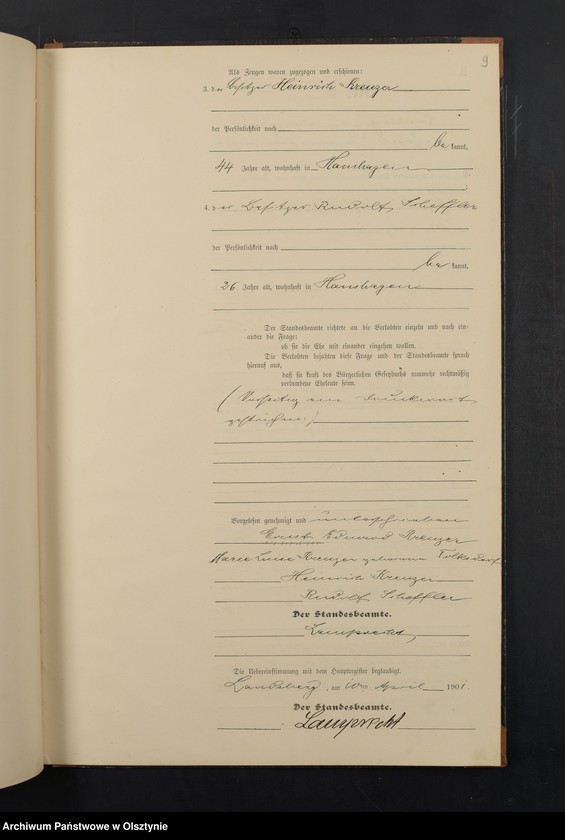 9
Als Zeugen waren zugezogen und erschienen:
3. der Besitzer Heinrich Krenzer
der Persönlichkeit nach
be kannt,
44 Jahre alt, wohnhaft in Hanshagen
4. der Besitzer Rudolf Scheffler
der Persönlichkeit nach
be kannt,
26 Jahre alt, wohnhaft in Hanshagen
Der Standesbeamte richtete an die Verlobten einzeln und nach ein-
ander die Frage:
ob sie die Ehe mit einander eingehen wollen.
Die Verlobten bejahten diese Frage und der Standesbeamte sprach
hierauf aus,
daß sie kraft des Bürgerlichen Gesetzbuchs nunmehr rechtmäßig
verbundene Eheleute seien.
(Vorseitig ein Druckwort
gestrichen.)
Vorgelesen genehmigt und unterschrieben
Ernst Eduard Krenzer
Marie Luise Krenzer geborene Tolksdorf
Heinrich Krenzer
Rudolf Scheffler
Der Standesbeamte.
Lamprecht
Die Uebereinstimmung mit dem Hauptregister beglaubigt.
Landsberg, am 10ten April 1901.
Der Standesbeamte.
Lamprecht
Archiwum Państwowe w Olsztynie